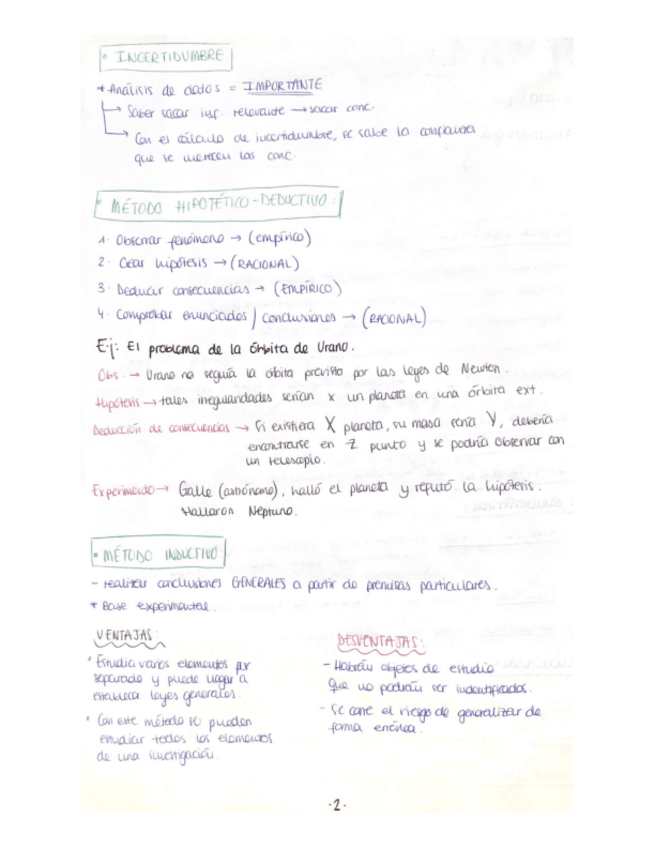 • INCERTIDUMBRE
* Análisis de datos = IMPORTANTE
Saber sacar inf. relevante → sacar conc.
Con el cálculo de incertidumbre, se sabe la confianza
que se merecen las conc.
• MÉTODO HIPOTÉTICO-DEDUCTIVO:
1. Observar fenómeno → (empírico)
2. Crear hipótesis → (RACIONAL)
3. Deducir consecuencias → (EMPÍRICO)
4. Comprobar enunciados / conclusiones → (RACIONAL)
Ej: El problema de la órbita de Urano.
Obs. → Urano no seguía la óbita previsto por las leyes de Newton.
Hipótesis → tales irregularidades serían x un planeta en una órbita ext.
Deducción de consecuencias → Si existiera X planeta, su masa sería Y, debería
encontrarse en Z punto y se podría observar con
un telescopio.
Experimento → Galle (astrónomo), halló el planeta y refutó la hipótesis.
Hallaron Neptuno.
• MÉTODO INDUCTIVO:
- realizar conclusiones GENERALES a partir de premisas particulares.
* Base experimental.
VENTAJAS:
• Estudia varios elementos por
separado y puede llegar a
establecer leyes generales.
• Con este método se pueden
estudiar todos los elementos
de una investigación.
DESVENTAJAS:
- Habrán objetos de estudio
que no podrán ser
- Se corre el riesgo de generalizar de
forma errónea.
·2·